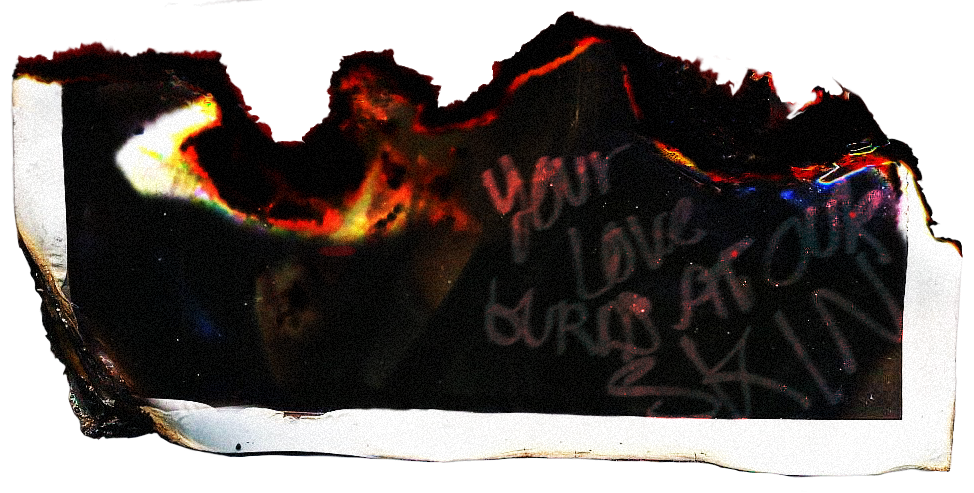 your
Love
burns AT OUR
SKIN